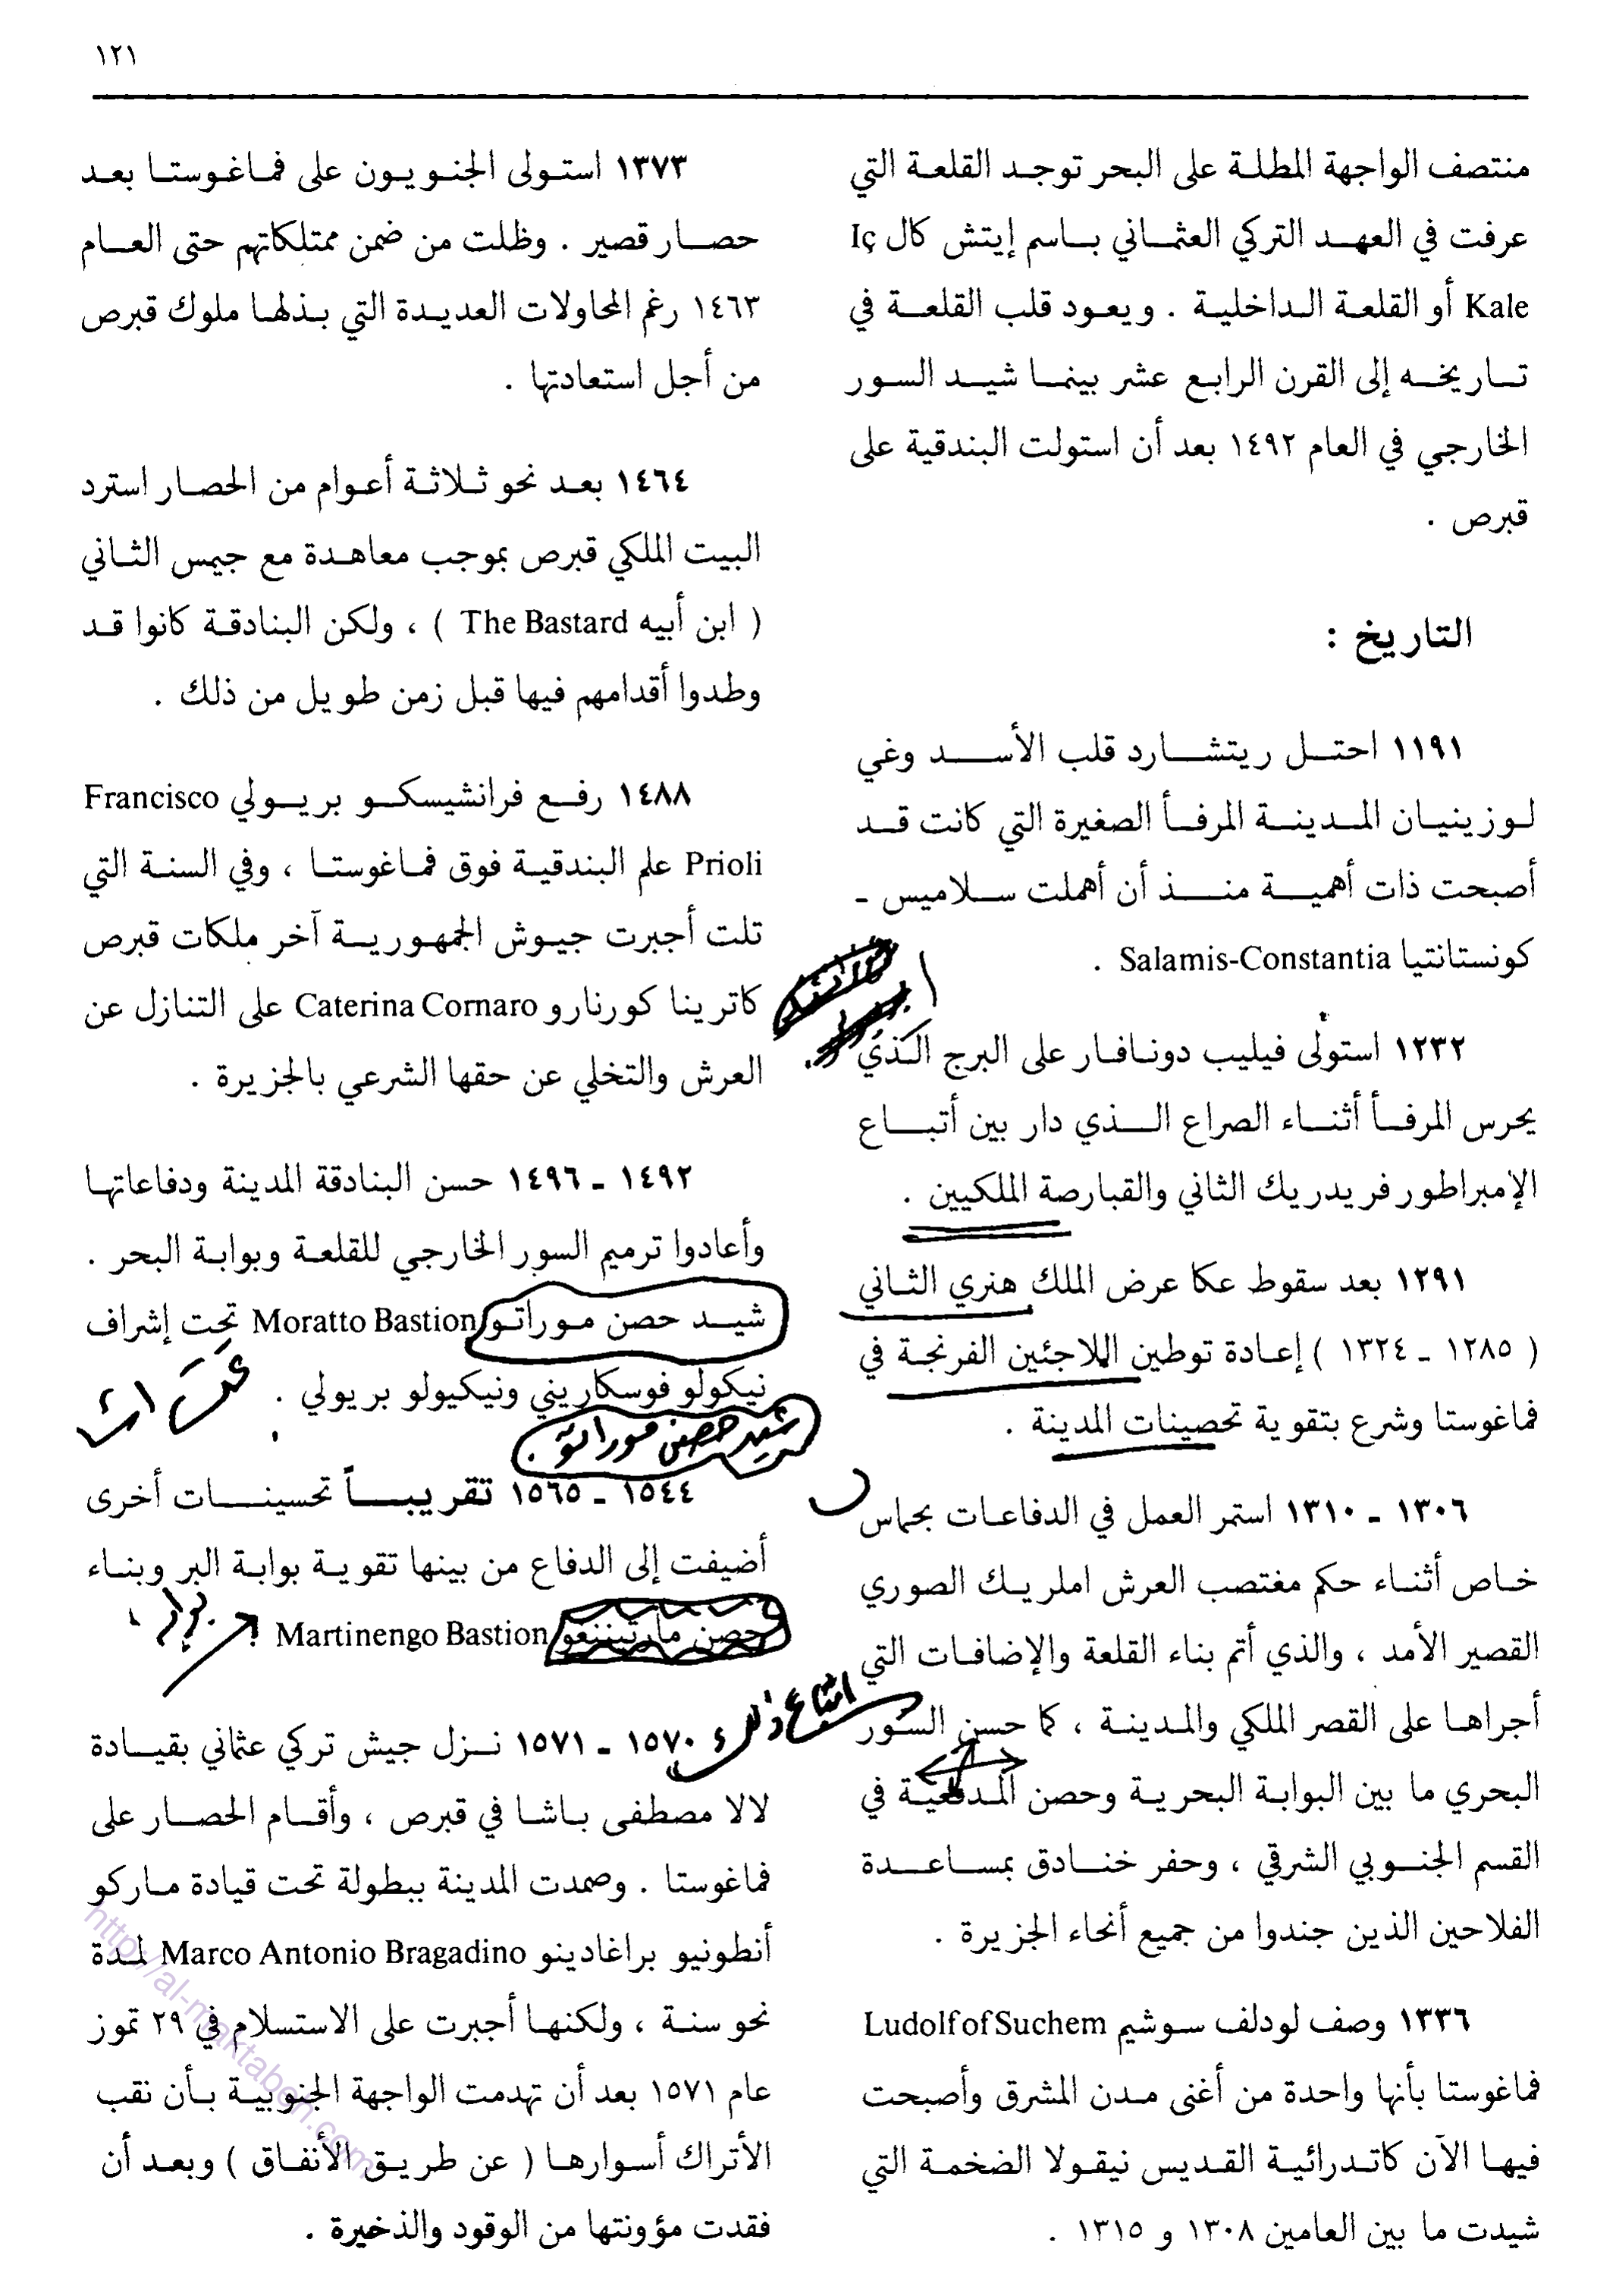 ١٢١
منتصف الواجهة المطلة على البحر توجد القلعة التي
عرفت في العهد التركي العثماني باسم إيتش كال Iç
Kale أو القلعة الداخلية . ويعود قلب القلعة في
تاريخه إلى القرن الرابع عشر بينما شيد السور
الخارجي في العام ١٤٩٢ بعد أن استولت البندقية على
قبرص .
التاريخ :
١١٩١ احتل ريتشارد قلب الأسد وغي
لوزينيان المدينة المرفأ الصغيرة التي كانت قد
أصبحت ذات أهمية منذ أن أهملت سلاميس -
كونستانتيا Salamis-Constantia .
١٢٣٢ استولى فيليب دونافار على البرج الذي
يحرس المرفأ أثناء الصراع الذي دار بين أتباع
الإمبراطور فريدريك الثاني والقبارصة الملكيين .
١٢٩١ بعد سقوط عكا عرض الملك هنري الثاني
( ١٢٨٥ - ١٣٢٤ ) إعادة توطين اللاجئين الفرنجة في
فماغوستا وشرع بتقوية تحصينات المدينة .
١٣٠٦ - ١٣١٠ استمر العمل في الدفاعات بحماس
خاص أثناء حكم مغتصب العرش املريك الصوري
القصير الأمد ، والذي أتم بناء القلعة والإضافات التي
أجراها على القصر الملكي والمدينة ، كما حسن السور
البحري ما بين البوابة البحرية وحصن المدفعية في
القسم الجنوبي الشرقي ، وحفر خنادق بمساعدة
الفلاحين الذين جندوا من جميع أنحاء الجزيرة .
١٣٣٦ وصف لودلف سوشيم Ludolf of Suchem
فماغوستا بأنها واحدة من أغنى مدن المشرق وأصبحت
فيها الآن كاتدرائية القديس نيقولا الضخمة التي
شيدت ما بين العامين ١٣٠٨ و ١٣١٥ .
١٣٧٣ استولى الجنويون على فماغوستا بعد
حصار قصير . وظلت من ضمن ممتلكاتهم حتى العام
١٤٦٣ رغم المحاولات العديدة التي بذلها ملوك قبرص
من أجل استعادتها .
١٤٦٤ بعد نحو ثلاثة أعوام من الحصار استرد
البيت الملكي قبرص بموجب معاهدة مع جيمس الثاني
( ابن أبيه The Bastard ) ، ولكن البنادقة كانوا قد
وطدوا أقدامهم فيها قبل زمن طويل من ذلك .
١٤٨٨ رفع فرانشيسكو بريولي Francisco
Prioli علم البندقية فوق فماغوستا ، وفي السنة التي
تلت أجبرت جيوش الجمهورية آخر ملكات قبرص
كاترينا كورنارو Caterina Cornaro على التنازل عن
العرش والتخلي عن حقها الشرعي بالجزيرة .
١٤٩٢ - ١٤٩٦ حسن البنادقة المدينة ودفاعاتها
وأعادوا ترميم السور الخارجي للقلعة وبوابة البحر .
شيد حصن موراتو Moratto Bastion تحت إشراف
نيكولو فوسكاريني ونيكيولو بريولي .
شيد حصن موراتو .
١٥٤٤ - ١٥٦٥ تقريباً تحسينات أخرى
أضيفت إلى الدفاع من بينها تقوية بوابة البر وبناء
حصن مارتيننغو Martinengo Bastion !
١٥٧٠ - ١٥٧١ نزل جيش تركي عثماني بقيادة
لالا مصطفى باشا في قبرص ، وأقام الحصار على
فماغوستا . وصمدت المدينة ببطولة تحت قيادة ماركو
أنطونيو براغادينو Marco Antonio Bragadino لمدة
نحو سنة ، ولكنها أجبرت على الاستسلام في ٢٩ تموز
عام ١٥٧١ بعد أن تهدمت الواجهة الجنوبية بأن نقب
الأتراك أسوارها ( عن طريق الأنفاق ) وبعد أن
فقدت مؤونتها من الوقود والذخيرة .
http://al-maktabeh.com